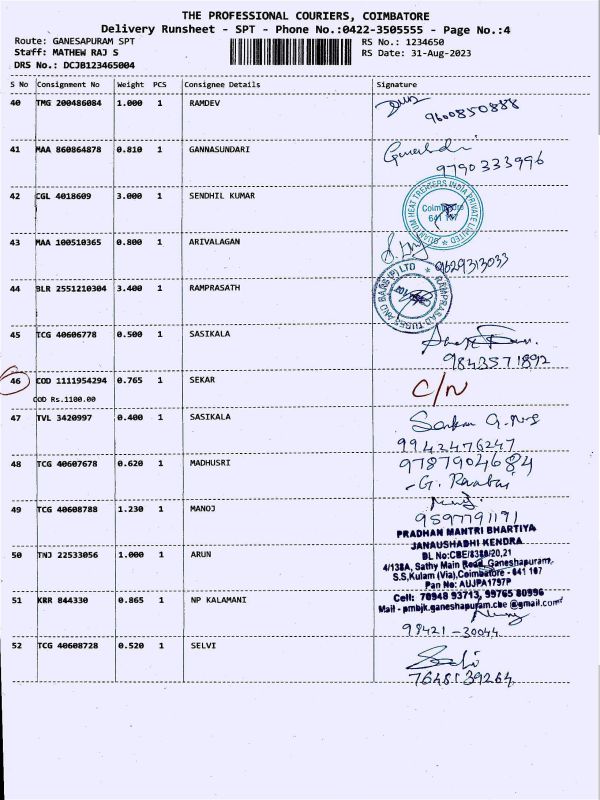 THE PROFESSIONAL COURIERS, COIMBATORE
Delivery Runsheet - SPT - Phone No.:0422-3505555 - Page No.:4
Route: GANESAPURAM SPT RS No.: 1234650
Staff: MATHEW RAJ S RS Date: 31-Aug-2023
DRS No.: DCJB123465004
S No Consignment No Weight PCS Consignee Details Signature
40 TMG 200486084 1.000 1 RAMDEV
9600850888
41 MAA 860864878 0.810 1 GANNASUNDARI
9790333996
42 CGL 4018609 3.000 1 SENDHIL KUMAR
QUANTUM HEAT TREATERS INDIA PRIVATE LIMITED
Coimbatore
641 107
43 MAA 100510365 0.800 1 ARIVALAGAN
9629313033
44 BLR 2551210304 3.400 1 RAMPRASATH
RAMPRASAD TUBES AND BARS (P) LTD
45 TCG 40606778 0.500 1 SASIKALA
9843571892
46 COD 1111954294 0.765 1 SEKAR C/N
COD Rs.1100.00
47 TVL 3420997 0.400 1 SASIKALA
9942476247
48 TCG 40607678 0.620 1 MADHUSRI 9787904684
49 TCG 40608788 1.230 1 MANOJ
9597791191
PRADHAN MANTRI BHARTIYA
JANAUSHADHI KENDRA
50 TNJ 22533056 1.000 1 ARUN
DL No:CBE/8388/20,21
4/138A, Sathy Main Road, Ganeshapuram,
S.S,Kulam (Via),Coimbatore - 641 107
Pan No: AUJPA1797P
51 KRR 844330 0.865 1 NP KALAMANI
Cell: 78948 93713, 99765 80996
Mail - pmbjk.ganeshapuram.cbe @gmail.com
98421-30044
52 TCG 40608728 0.520 1 SELVI
7648139264